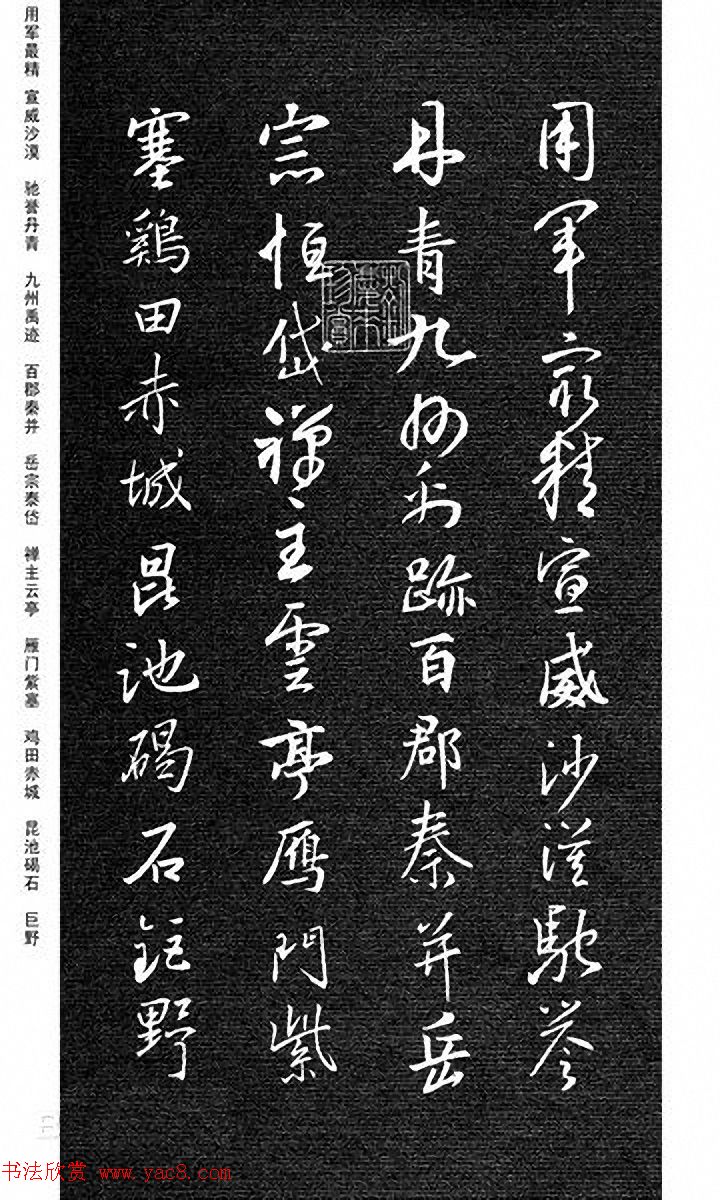 用軍㝡精宣威沙漠馳誉
丹青九州禹跡百郡秦并岳
宗恒岱禅主雲亭鴈門紫
塞鷄田赤城昆池碣石鉅野
用军最精 宣威沙漠 驰誉丹青 九州禹迹 百郡秦并 岳宗泰岱 禅主云亭 雁门紫塞 鸡田赤城 昆池碣石 巨野
书法欣赏 www.yac8.com